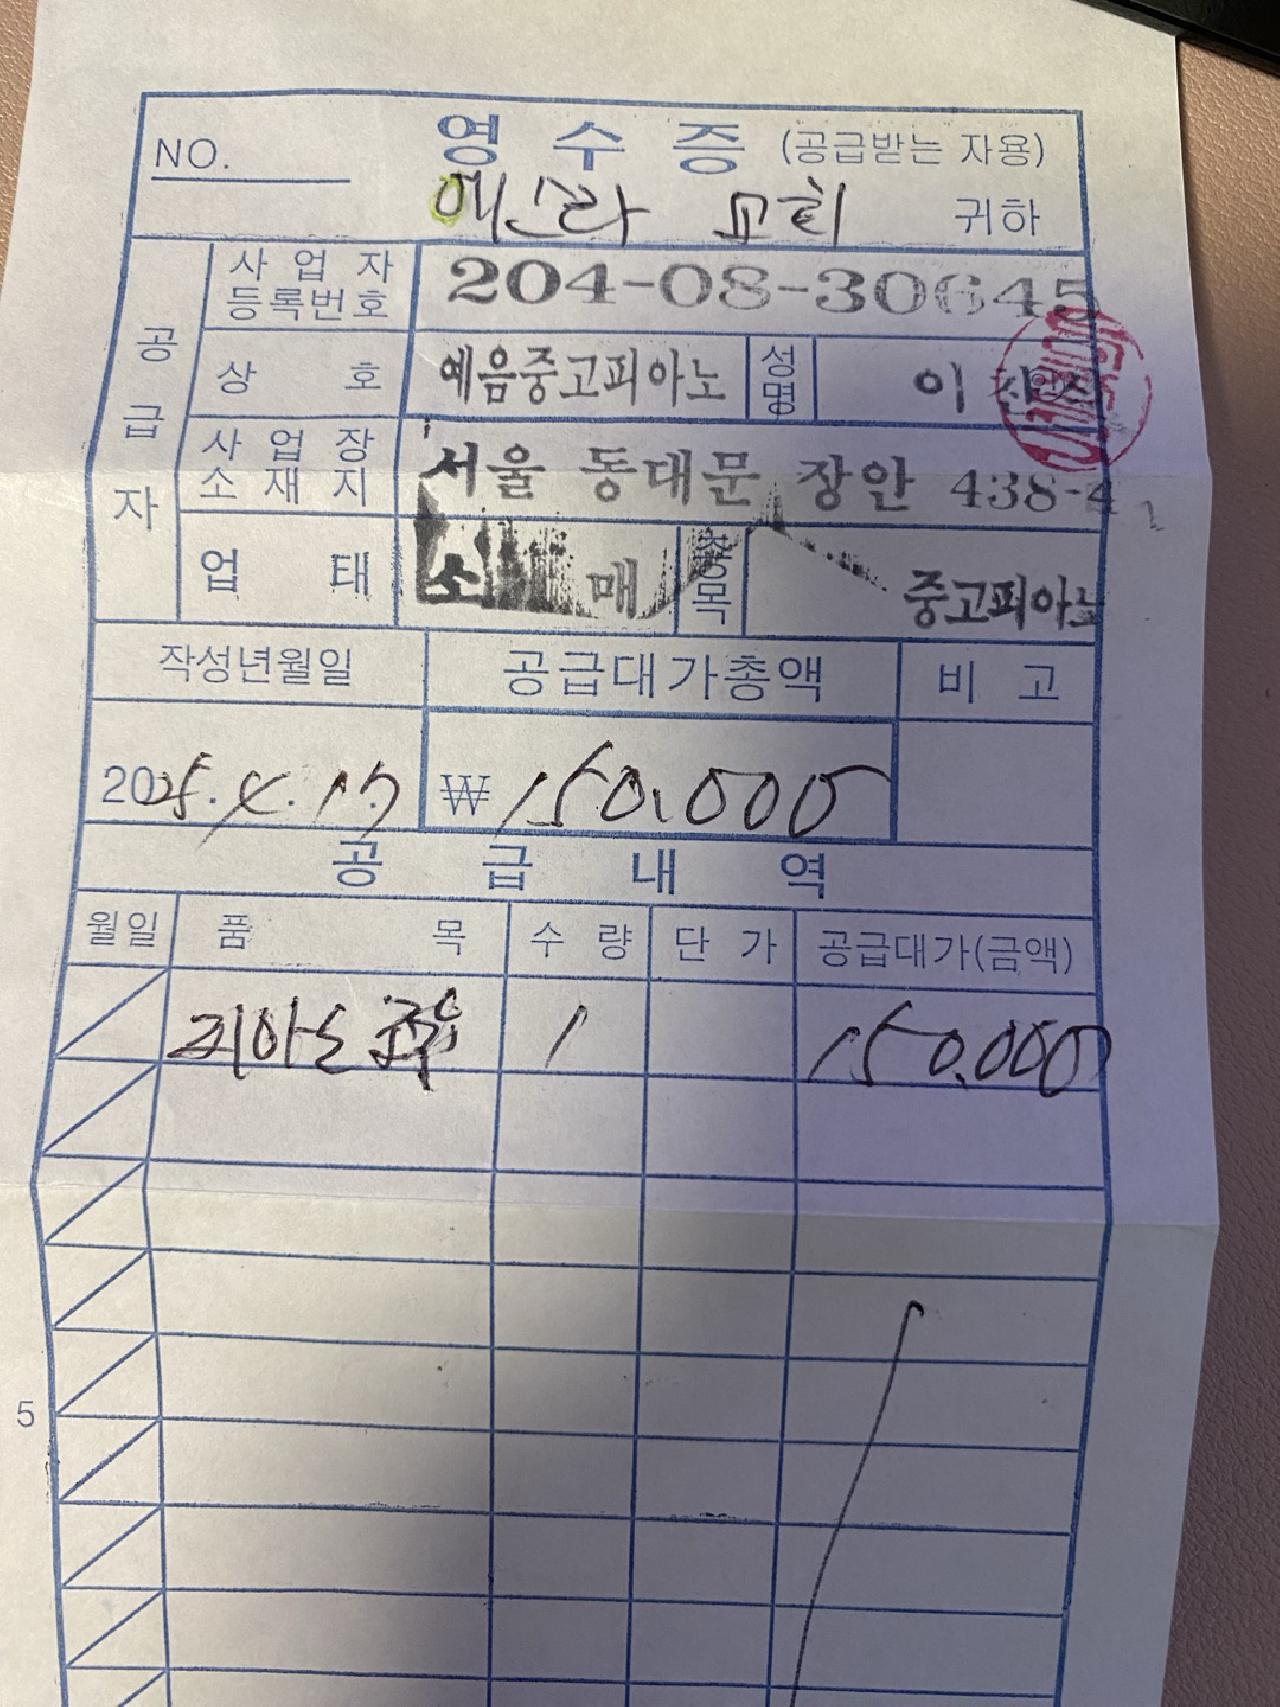 NO. 영수증 (공급받는 자용)
에스라 교회 귀하
공급자
사업자등록번호 204-08-30645
상호 예음중고피아노 성명 이
사업장소재지 서울 동대문 장안 438-4
업태 소매 종목 중고피아노
작성년월일 공급대가총액 비고
2025.4.17 ₩150,000
공급내역
월일 품목 수량 단가 공급대가(금액)
피아노 조율 1 150,000
5